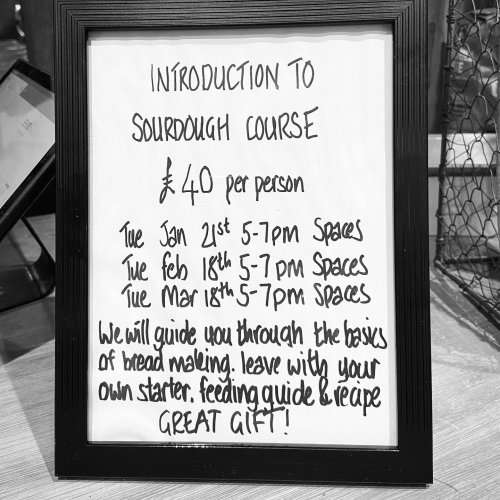 INTRODUCTION TO
SOURDOUGH COURSE
£40 per person
Tue Jan 21st 5-7pm Spaces
Tue feb 18th 5-7pm Spaces
Tue Mar 18th 5-7pm Spaces
We will guide you through the basics
of bread making. leave with your
own starter. feeding guide & recipe
GREAT GIFT!